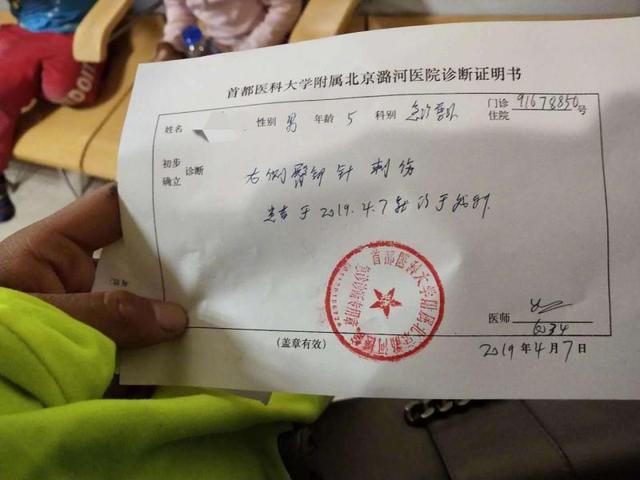 首都医科大学附属北京潞河医院诊断证明书
姓名 性别 男 年龄 5 科别 急诊 门诊 住院 91678850 号
初步 确立 诊断
右侧臀部针刺伤
患者于2019.4.7就诊于我科.
首都医科大学附属北京潞河医院
急诊诊断专用章
医师
6034
(盖章有效)
2019年4月7日